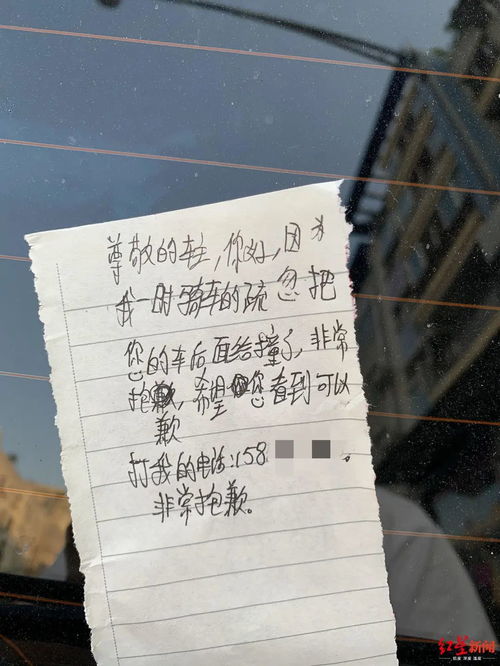 尊敬的车主,你好,因为
我一时骑车的疏忽把
您的车后面给撞了,非常
抱歉,希望您看到可以
歉
打我的电话:158
非常抱歉。
红星新闻
热度 深度 温度